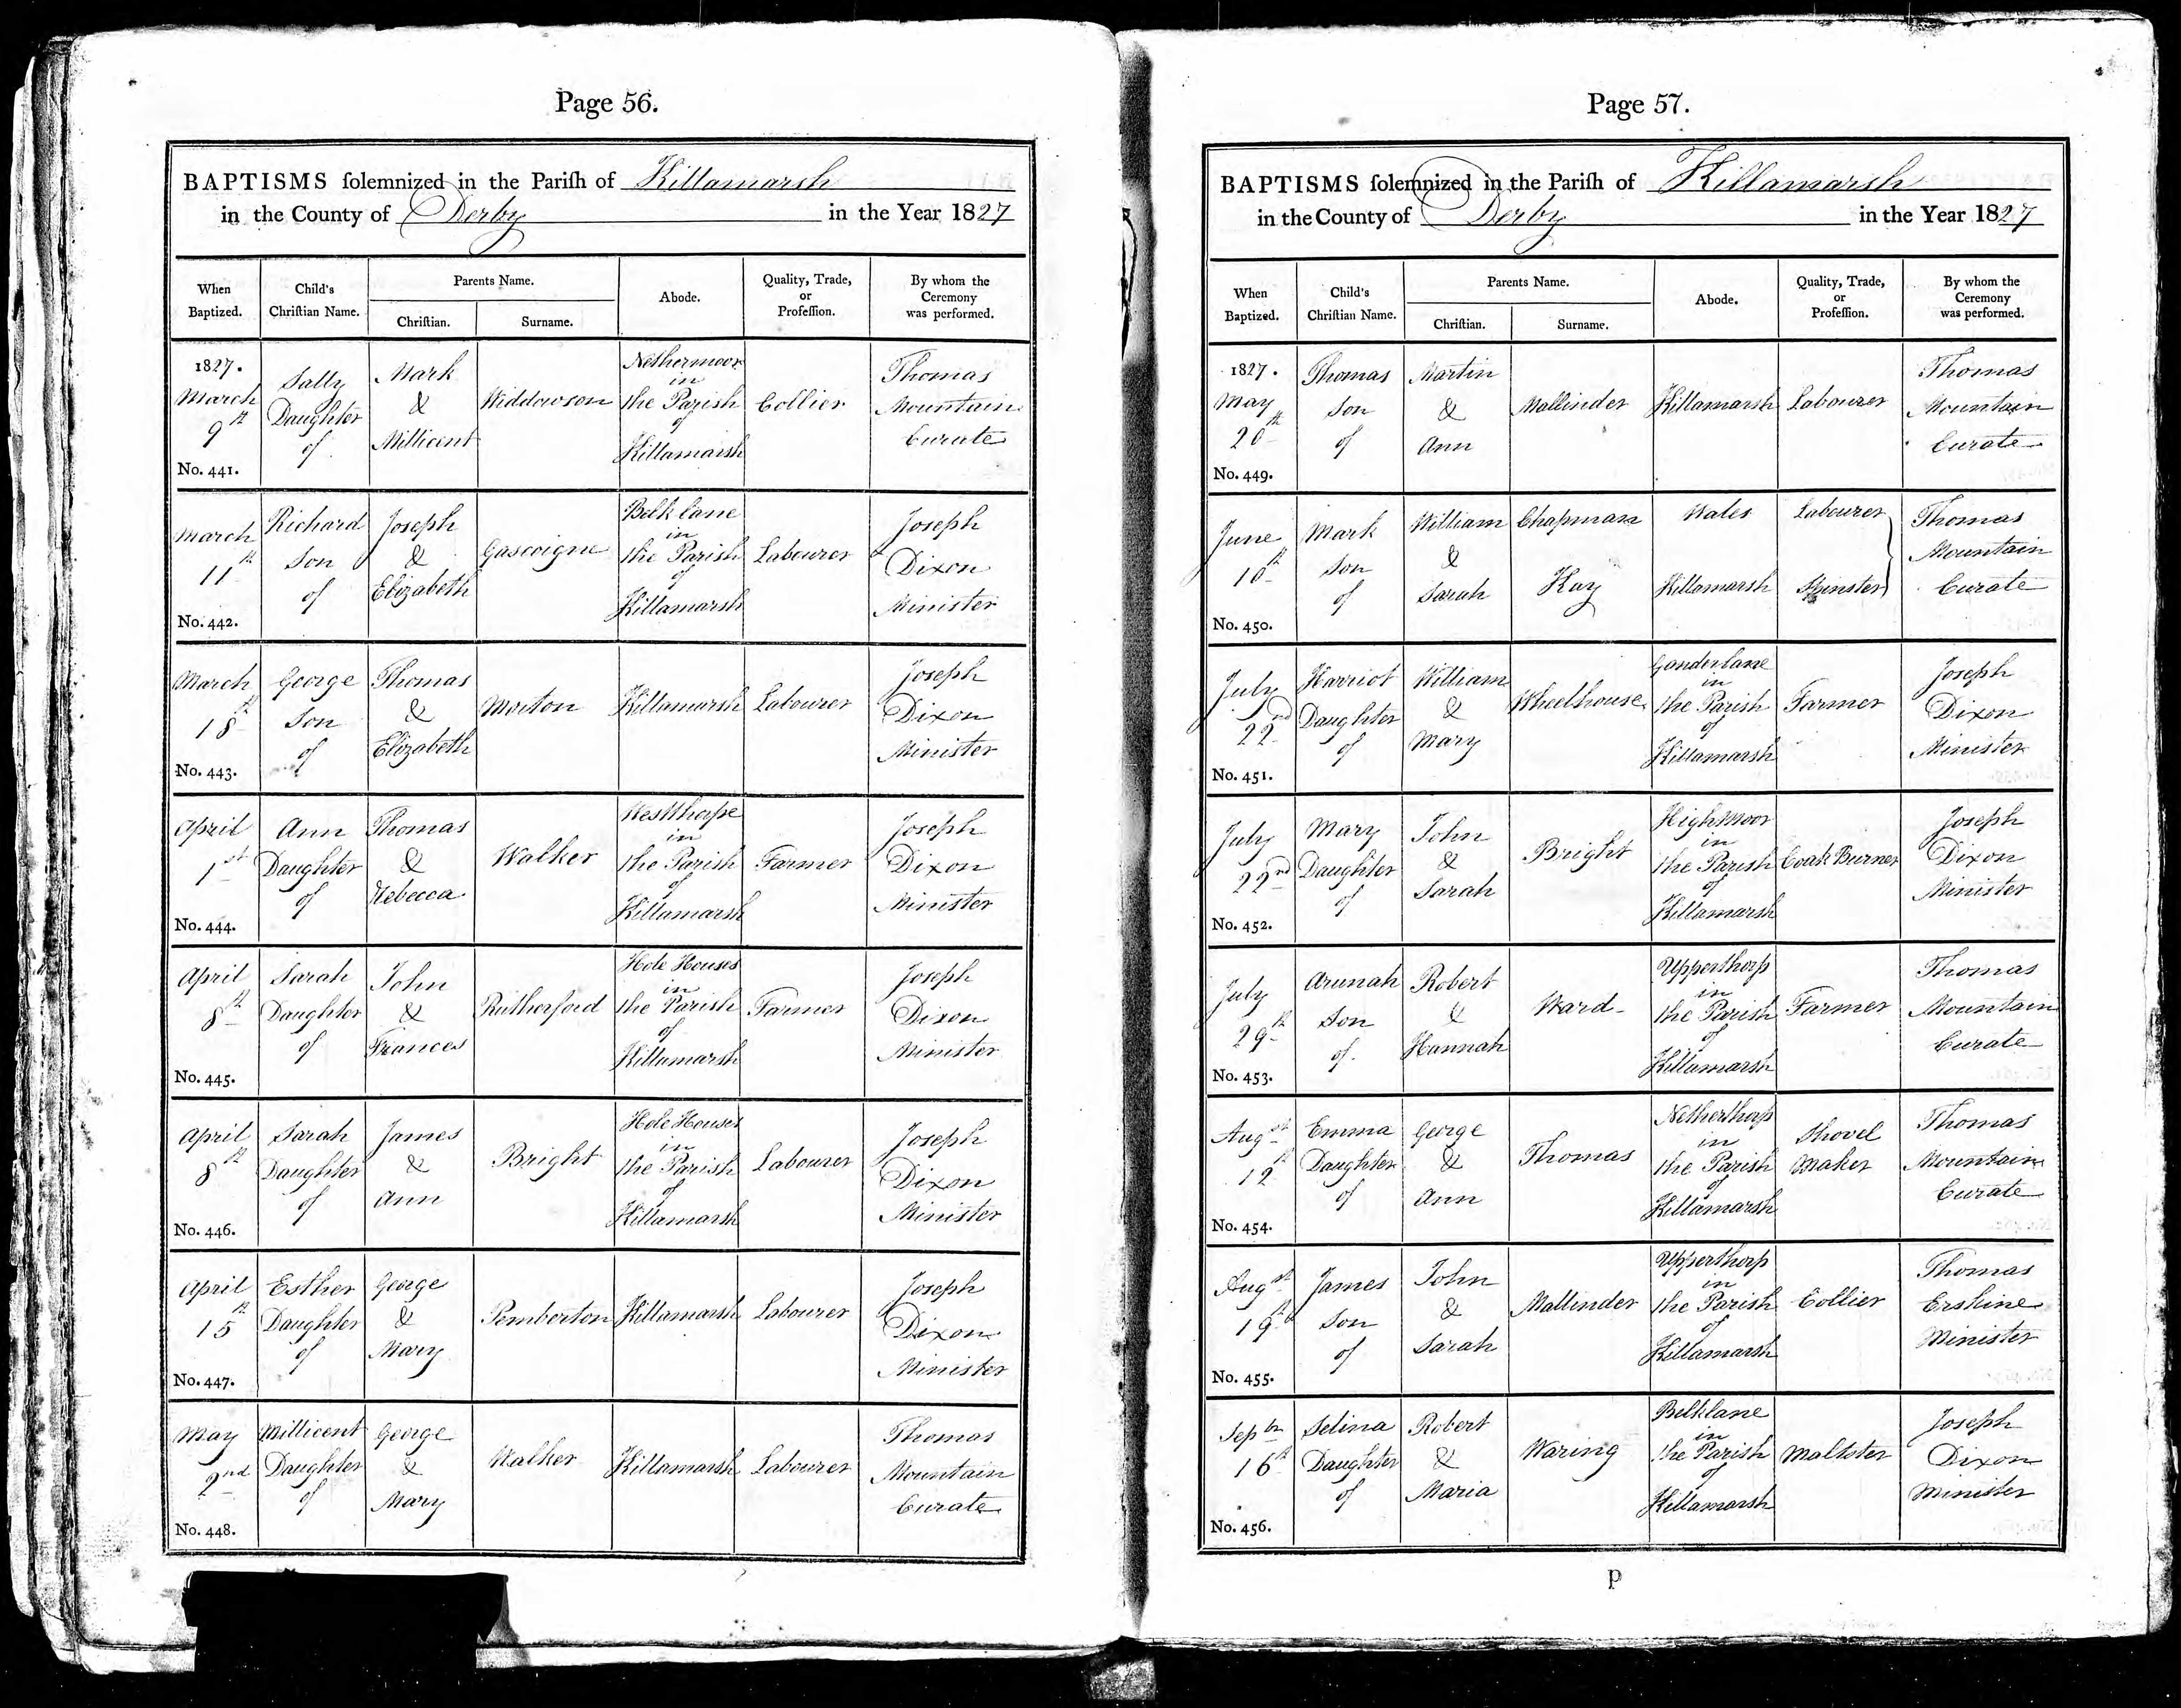 Page 56.
BAPTISMS solemnized in the Parish of Killamarsh
in the County of Derby in the Year 1827
When Baptized.
Child's Christian Name.
Parents Name.
Christian.
Surname.
Abode.
Quality, Trade, or Profession.
By whom the Ceremony was performed.
1827.
March
9th
No. 441.
Sally
Daughter
of
Mark
&
Millicent
Widdowson
Nethermoor
in
the Parish
of
Killamarsh
Collier
Thomas
Mountain
Curate
March
11th
No. 442.
Richard
Son
of
Joseph
&
Elizabeth
Gascoigne
Belk lane
in
the Parish
of
Killamarsh
Labourer
Joseph
Dixon
Minister
March
18th
No. 443.
George
Son
of
Thomas
&
Elizabeth
Morton
Killamarsh
Labourer
Joseph
Dixon
Minister
April
1st
No. 444.
Ann
Daughter
of
Thomas
&
Rebecca
Walker
Westthorpe
in
the Parish
of
Killamarsh
Farmer
Joseph
Dixon
Minister
April
8th
No. 445.
Sarah
Daughter
of
John
&
Frances
Rutherford
Hole Houses
in
the Parish
of
Killamarsh
Farmer
Joseph
Dixon
Minister
April
8th
No. 446.
Sarah
Daughter
of
James
&
Ann
Bright
Hole Houses
in
the Parish
of
Killamarsh
Labourer
Joseph
Dixon
Minister
April
15th
No. 447.
Esther
Daughter
of
George
&
Mary
Pemberton
Killamarsh
Labourer
Joseph
Dixon
Minister
May
2nd
No. 448.
Millicent
Daughter
of
George
&
Mary
Walker
Killamarsh
Labourer
Thomas
Mountain
Curate
Page 57.
BAPTISMS solemnized in the Parish of Killamarsh
in the County of Derby in the Year 1827
When Baptized.
Child's Christian Name.
Parents Name.
Christian.
Surname.
Abode.
Quality, Trade, or Profession.
By whom the Ceremony was performed.
1827.
May
20th
No. 449.
Thomas
Son
of
Martin
&
Ann
Mallinder
Killamarsh
Labourer
Thomas
Mountain
Curate
June
10th
No. 450.
Mark
Son
of
William
&
Sarah
Chapman
Kay
Wales
Killamarsh
Labourer
Spinster
Thomas
Mountain
Curate
July
22nd
No. 451.
Harriot
Daughter
of
William
&
Mary
Wheelhouse
Ganderlane
in
the Parish
of
Killamarsh
Farmer
Joseph
Dixon
Minister
July
22nd
No. 452.
Mary
Daughter
of
John
&
Sarah
Bright
Highmoor
in
the Parish
of
Killamarsh
Coak Burner
Joseph
Dixon
Minister
July
29th
No. 453.
Arunah
Son
of
Robert
&
Hannah
Ward
Upperthorp
in
the Parish
of
Killamarsh
Farmer
Thomas
Mountain
Curate
Augst
12th
No. 454.
Emma
Daughter
of
George
&
Ann
Thomas
Netherthorp
in
the Parish
of
Killamarsh
Shovel
Maker
Thomas
Mountain
Curate
Augst
19th
No. 455.
James
Son
of
John
&
Sarah
Mallinder
Upperthorp
in
the Parish
of
Killamarsh
Collier
Thomas
Erskine
Minister
Sepbr
16th
No. 456.
Selina
Daughter
of
Robert
&
Maria
Waring
Belklane
in
the Parish
of
Killamarsh
Maltster
Joseph
Dixon
Minister
P